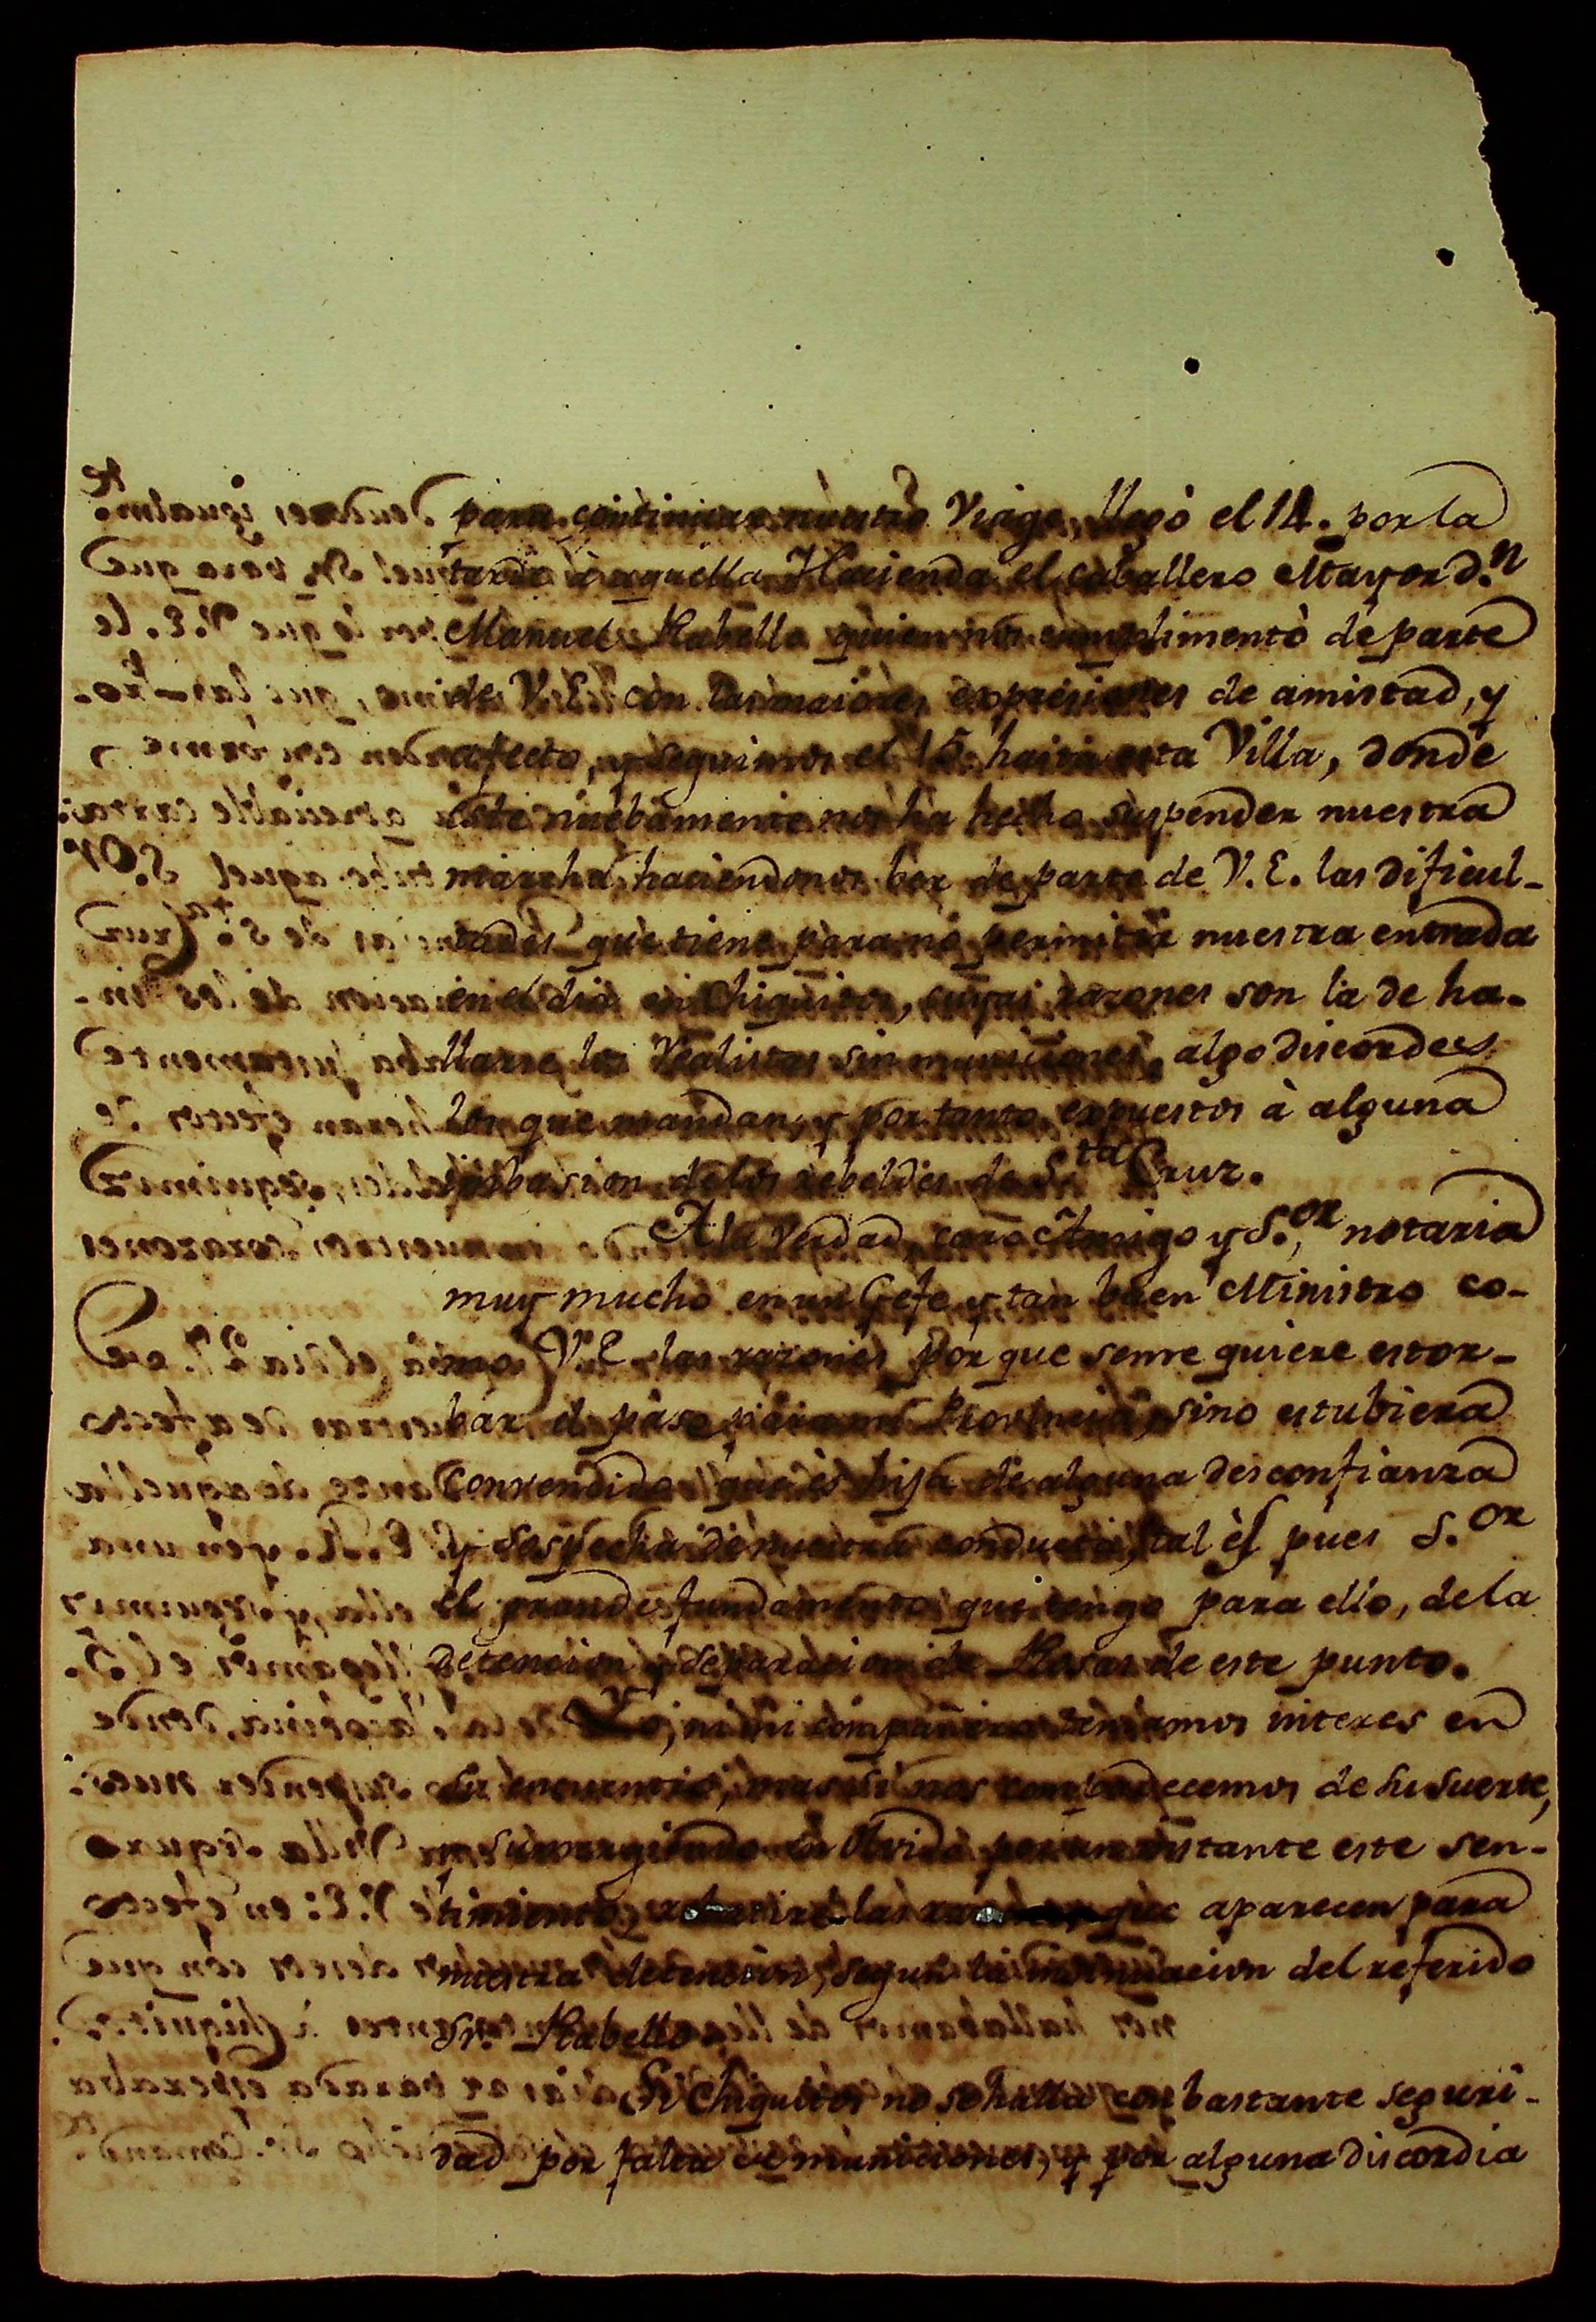 para continuar nuestro Viage, llegò el 14. por la
tarde à aquella Hacienda el caballero Mayor D.n
Manuel Rabello quien nos cumplimentò de parte
de V.E. con las maiores expresiones de amistad, y
afecto, y seguimos el 15. hasta esta Villa, donde
este nuebamente nos ha hecho suspender nuestra
marcha, haciendonos ber de parte de V.E. las dificul-
tades que tiene para no permitir nuestra entrada
en el dia en Chiquitos, cuyas razones son la de ha-
llarse los Realistas sin municiones, algo discordes
los que mandan, y por tanto expuestos à alguna
imbasion de los rebeldes de S.ta Cruz.
A la verdad, caro Amigo y S.or, notaria
muy mucho en un Gefe y tan buen Ministro co-
mo V.E. las razones por que se me quiere estor-
bar el paso para mi Provincia, sino estubiera
convencido que ès hija de alguna desconfianza
y sospecha de nuestra conducta, tal ès pues S.or
el grande fundamento que tengo para ello, de la
detencion y separacion de Rosas de este punto.
Yo, ni mi compañero teniamos interes en
su encuentro, mas si nos compadecemos de su suerte,
y sumergiendo en olvido por un instante este sen-
timiento, las que aparecen para
nuestra detencion, segun la insinuacion del referido
Sr. Rabello.
Si Chiquitos no se halla con bastante seguri-
dad por falta de municiones, y por alguna discordia